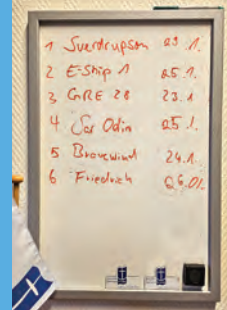 1 Sverdrupson 23.1.
2 E-Ship 1 25.1.
3 GRE 28 23.1
4 Sar Odin 25.1.
5 Bravewind 24.1.
6 Friedrich 26.01.